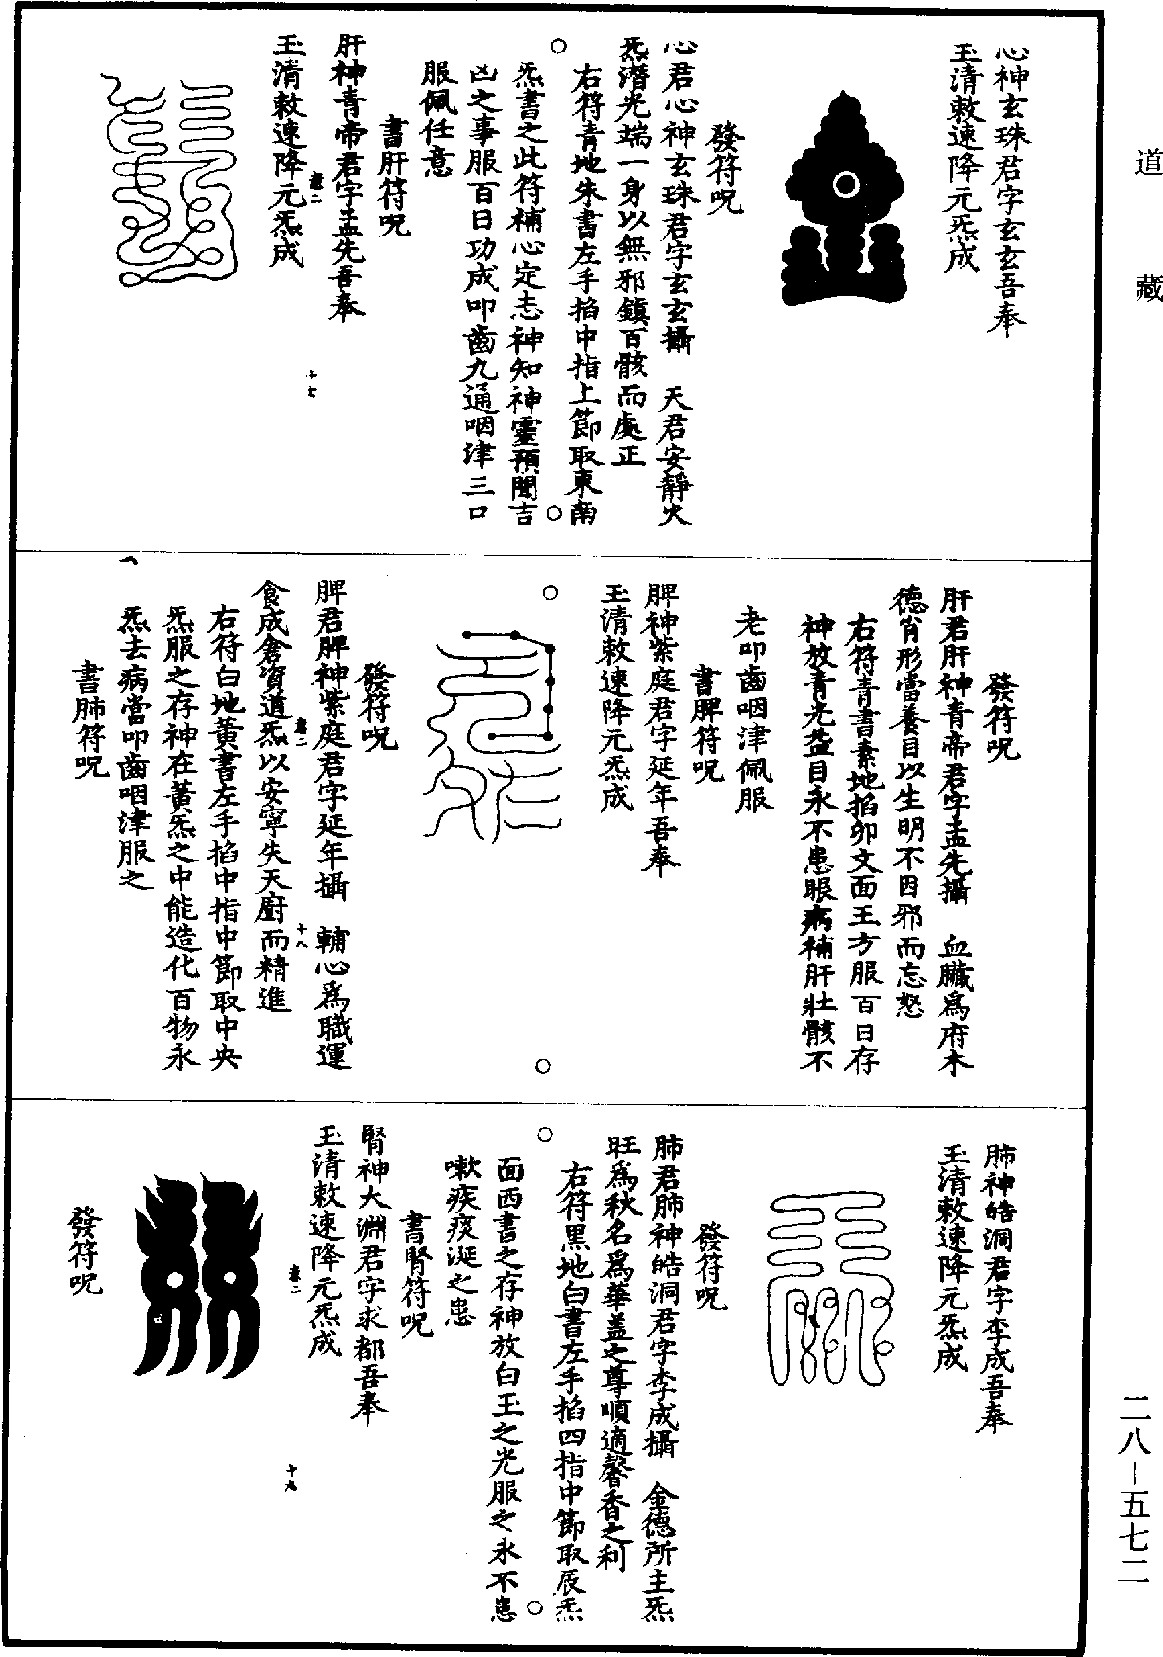 道藏
心神玄珠君字玄玄吾奉
玉清敕速降元炁成
發符呪
心君心神玄珠君字玄玄攝　天君安靜火
炁潛光端一身以無邪鎮百骸而處正
右符青地朱書左手掐中指上節取東南
炁書之此符補心定志神知神靈預聞吉
凶之事服百日功成叩齒九通咽津三口
服佩任意
書肝符呪
肝神青帝君字孟先吾奉
卷二
十七
玉清敕速降元炁成
發符呪
肝君肝神青帝君字孟先攝　血臟為府木
德肖形當養目以生明不因邪而忘怒
右符青書素地掐卯文面王方服百日存
神放青光益目永不患眼病補肝壯骸不
老叩齒咽津佩服
書脾符呪
脾神紫庭君字延年吾奉
玉清敕速降元炁成
發符呪
脾君脾神紫庭君字延年攝　輔心為職運
卷二
十八
食成倉資道炁以安寧失天廚而精進
右符白地黃書左手掐中指中節取中央
炁服之存神在黃炁之中能造化百物永
炁去病當叩齒咽津服之
書肺符呪
肺神皓洞君字李成吾奉
玉清敕速降元炁成
發符呪
肺君肺神皓洞君字李成攝　金德所主炁
旺為秋名為華蓋之尊順適馨香之利
右符黑地白書左手掐四指中節取辰炁
面西書之存神放白玉之光服之永不患
嗽疾痰涎之患
書腎符呪
腎神大淵君字求都吾奉
玉清敕速降元炁成
卷二
十九
發符呪
二八－五七二